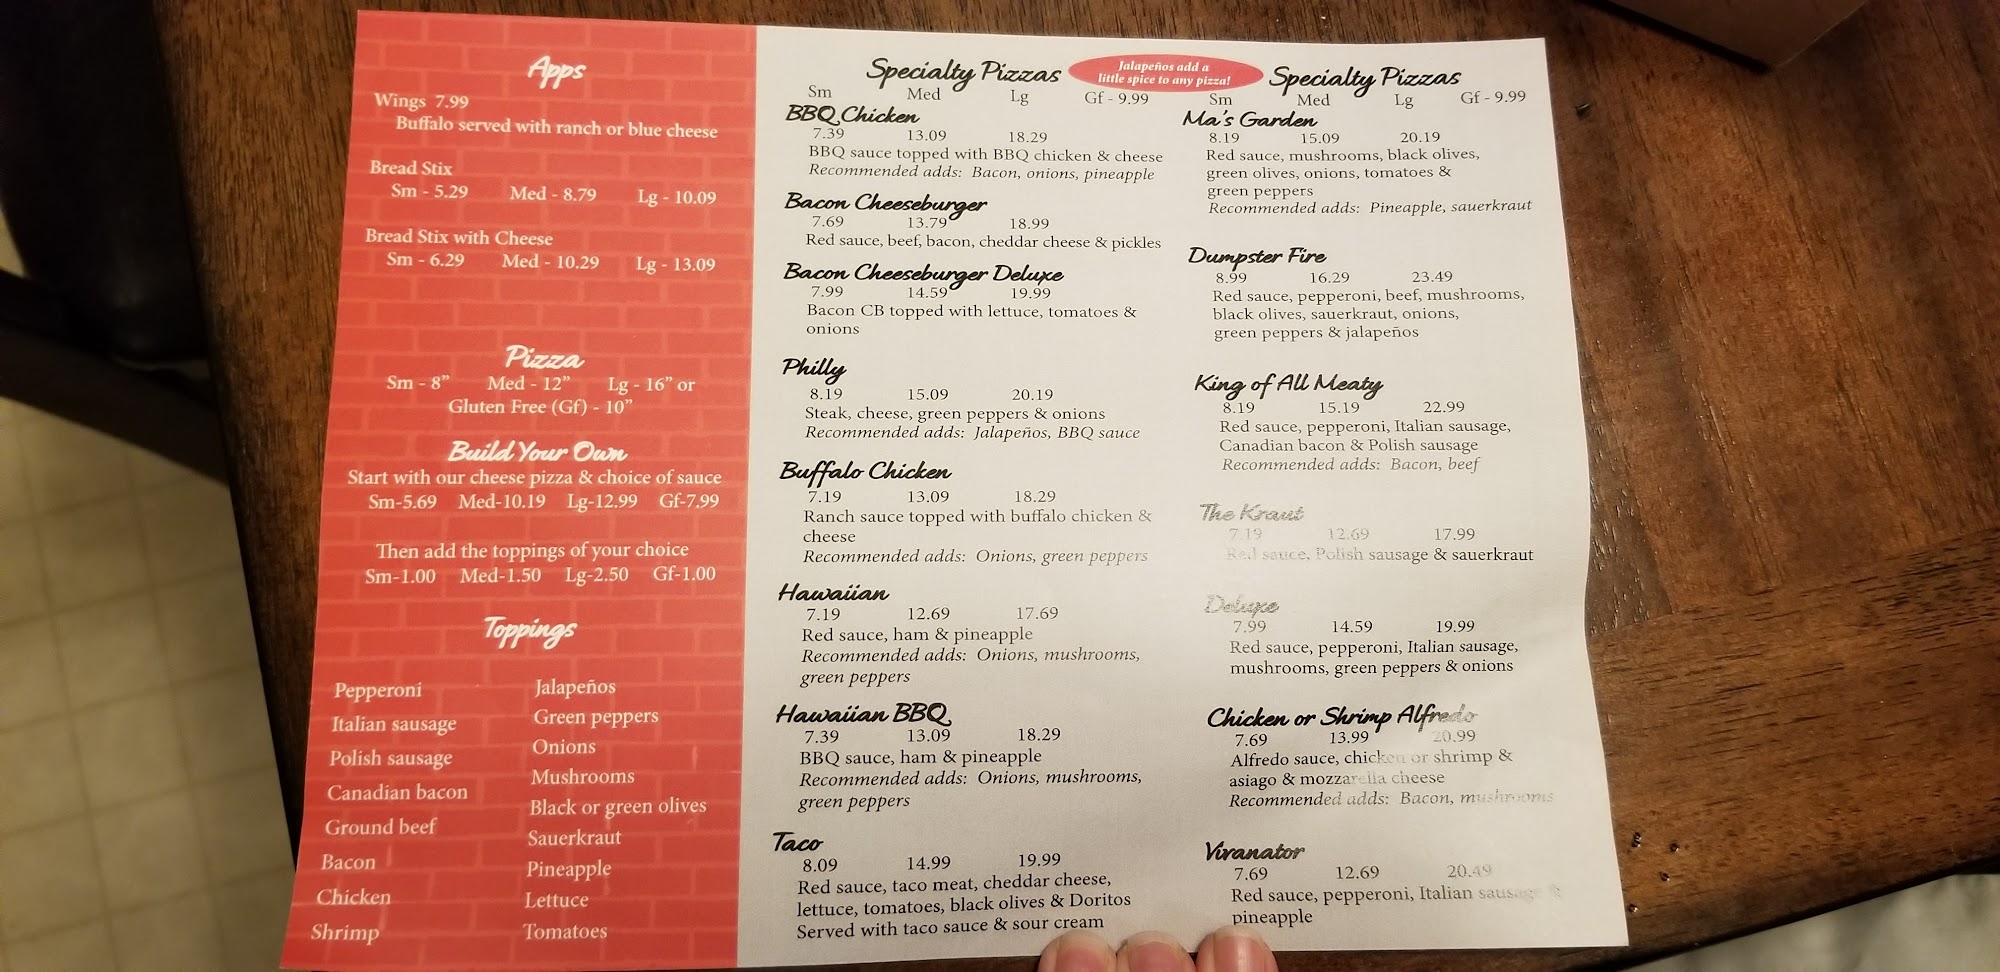 Apps
Wings 7.99
Buffalo served with ranch or blue cheese
Bread Stix
Sm - 5.29 Med - 8.79 Lg - 10.09
Bread Stix with Cheese
Sm - 6.29 Med - 10.29 Lg - 13.09
Pizza
Sm - 8" Med - 12" Lg - 16" or
Gluten Free (Gf) - 10"
Build Your Own
Start with our cheese pizza & choice of sauce
Sm-5.69 Med-10.19 Lg-12.99 Gf-7.99
Then add the toppings of your choice
Sm-1.00 Med-1.50 Lg-2.50 Gf-1.00
Toppings
Pepperoni
Italian sausage
Polish sausage
Canadian bacon
Ground beef
Bacon
Chicken
Shrimp
Jalapeños
Green peppers
Onions
Mushrooms
Black or green olives
Sauerkraut
Pineapple
Lettuce
Tomatoes
Specialty Pizzas
Sm Med Lg Gf - 9.99
BBQ Chicken
7.39 13.09 18.29
BBQ sauce topped with BBQ chicken & cheese
Recommended adds: Bacon, onions, pineapple
Bacon Cheeseburger
7.69 13.79 18.99
Red sauce, beef, bacon, cheddar cheese & pickles
Bacon Cheeseburger Deluxe
7.99 14.59 19.99
Bacon CB topped with lettuce, tomatoes &
onions
Philly
8.19 15.09 20.19
Steak, cheese, green peppers & onions
Recommended adds: Jalapeños, BBQ sauce
Buffalo Chicken
7.19 13.09 18.29
Ranch sauce topped with buffalo chicken &
cheese
Recommended adds: Onions, green peppers
Hawaiian
7.19 12.69 17.69
Red sauce, ham & pineapple
Recommended adds: Onions, mushrooms,
green peppers
Hawaiian BBQ
7.39 13.09 18.29
BBQ sauce, ham & pineapple
Recommended adds: Onions, mushrooms,
green peppers
Taco
8.09 14.99 19.99
Red sauce, taco meat, cheddar cheese,
lettuce, tomatoes, black olives & Doritos
Served with taco sauce & sour cream
Jalapeños add a
little spice to any pizza!
Specialty Pizzas
Sm Med Lg Gf - 9.99
Ma's Garden
8.19 15.09 20.19
Red sauce, mushrooms, black olives,
green olives, onions, tomatoes &
green peppers
Recommended adds: Pineapple, sauerkraut
Dumpster Fire
8.99 16.29 23.49
Red sauce, pepperoni, beef, mushrooms,
black olives, sauerkraut, onions,
green peppers & jalapeños
King of All Meaty
8.19 15.19 22.99
Red sauce, pepperoni, Italian sausage,
Canadian bacon & Polish sausage
Recommended adds: Bacon, beef
The Kraut
7.19 12.69 17.99
Red sauce, Polish sausage & sauerkraut
Deluxe
7.99 14.59 19.99
Red sauce, pepperoni, Italian sausage,
mushrooms, green peppers & onions
Chicken or Shrimp Alfredo
7.69 13.99 20.99
Alfredo sauce, chicken or shrimp &
asiago & mozzarella cheese
Recommended adds: Bacon, mushrooms
Viranator
7.69 12.69 20.49
Red sauce, pepperoni, Italian sausage &
pineapple